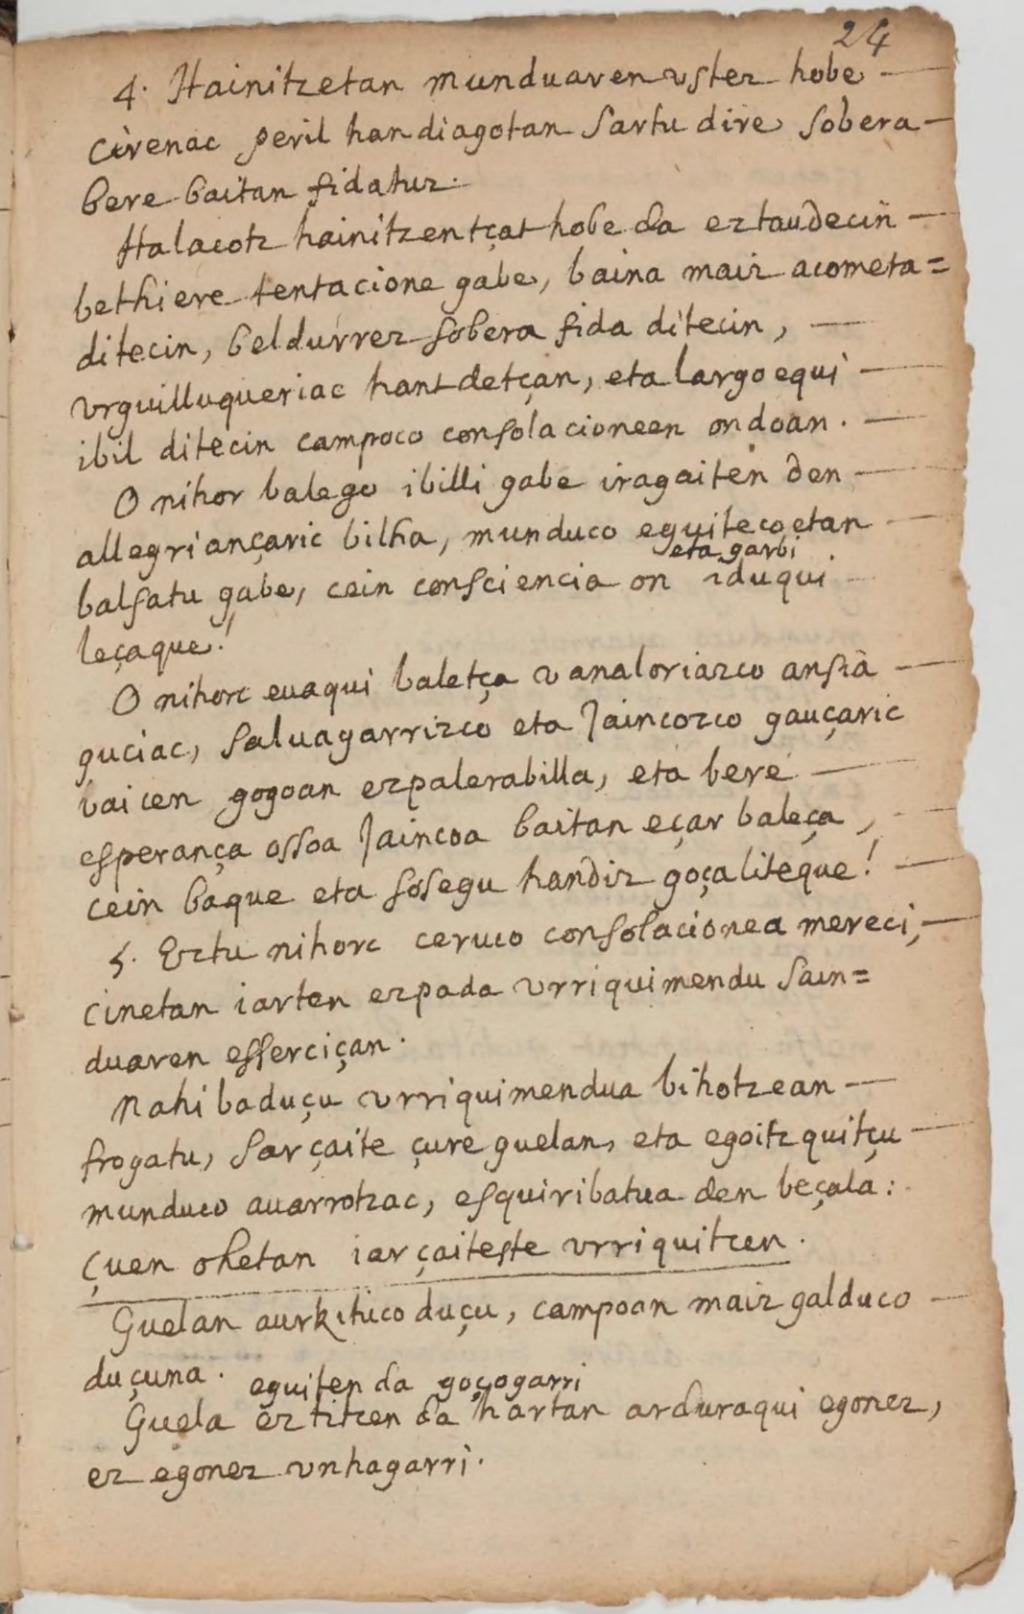 24
4. Hainitzetan munduaren uster hobe
cirenac peril handiagotan sartu dire sobera
bere baitan fidatuz.
Halacotz hainitzentçat hobe da eztaudecin
bethiere tentacione gabe, baina maiz acometa=
ditecin, beldurrez sobera fida ditecin,
urguilluqueriac hant detçan, eta largoequi
ibil ditecin campoco consolacioneen ondoan.
O nihor balego ibilli gabe iragaiten den
allegriançaric bilha, munduco eguitecoetan
eta garbi
balsatu gabe, cein consciencia on iduqui
leçaque!
O nihorc euaqui baletça vanaloriazco ansia
guciac, saluagarrizco eta Jaincozco gauçaric
baicen gogoan ezpalerabilla, eta bere
esperança ossoa Jaincoa baitan eçar baleça,
cein baque eta sosegu handiz goçaliteque!
5. Eztu nihorc ceruco consolacionea mereci,
cinetan iarten ezpada urriquimendu sain=
duaren esserciçan.
Nahi baduçu urriquimendua bihotzean
frogatu, sarçaite çure guelan, eta egoitz quitçu
munduco auarrotzac, esquiribatua den beçala:
Çuen ohetan iarçaiteste urriquitzen.
Guelan aurkituco duçu, campoan maiz galduco
duçuna.
eguiten da goçogarri
Guela eztitzen da hartan arduraqui egonez,
ez egonez unhagarri.